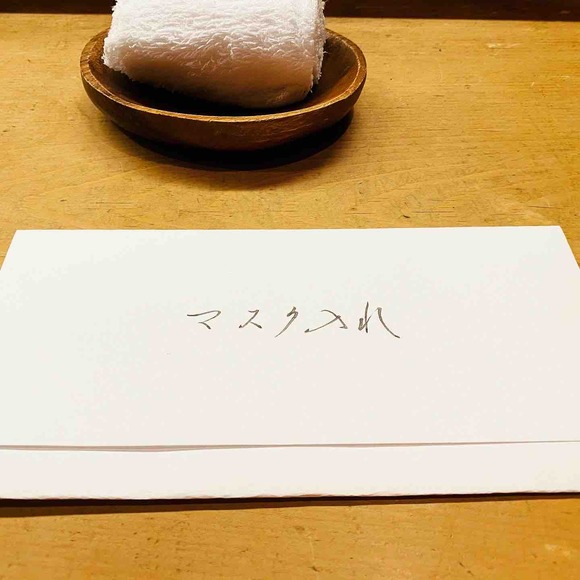 マスク入れ